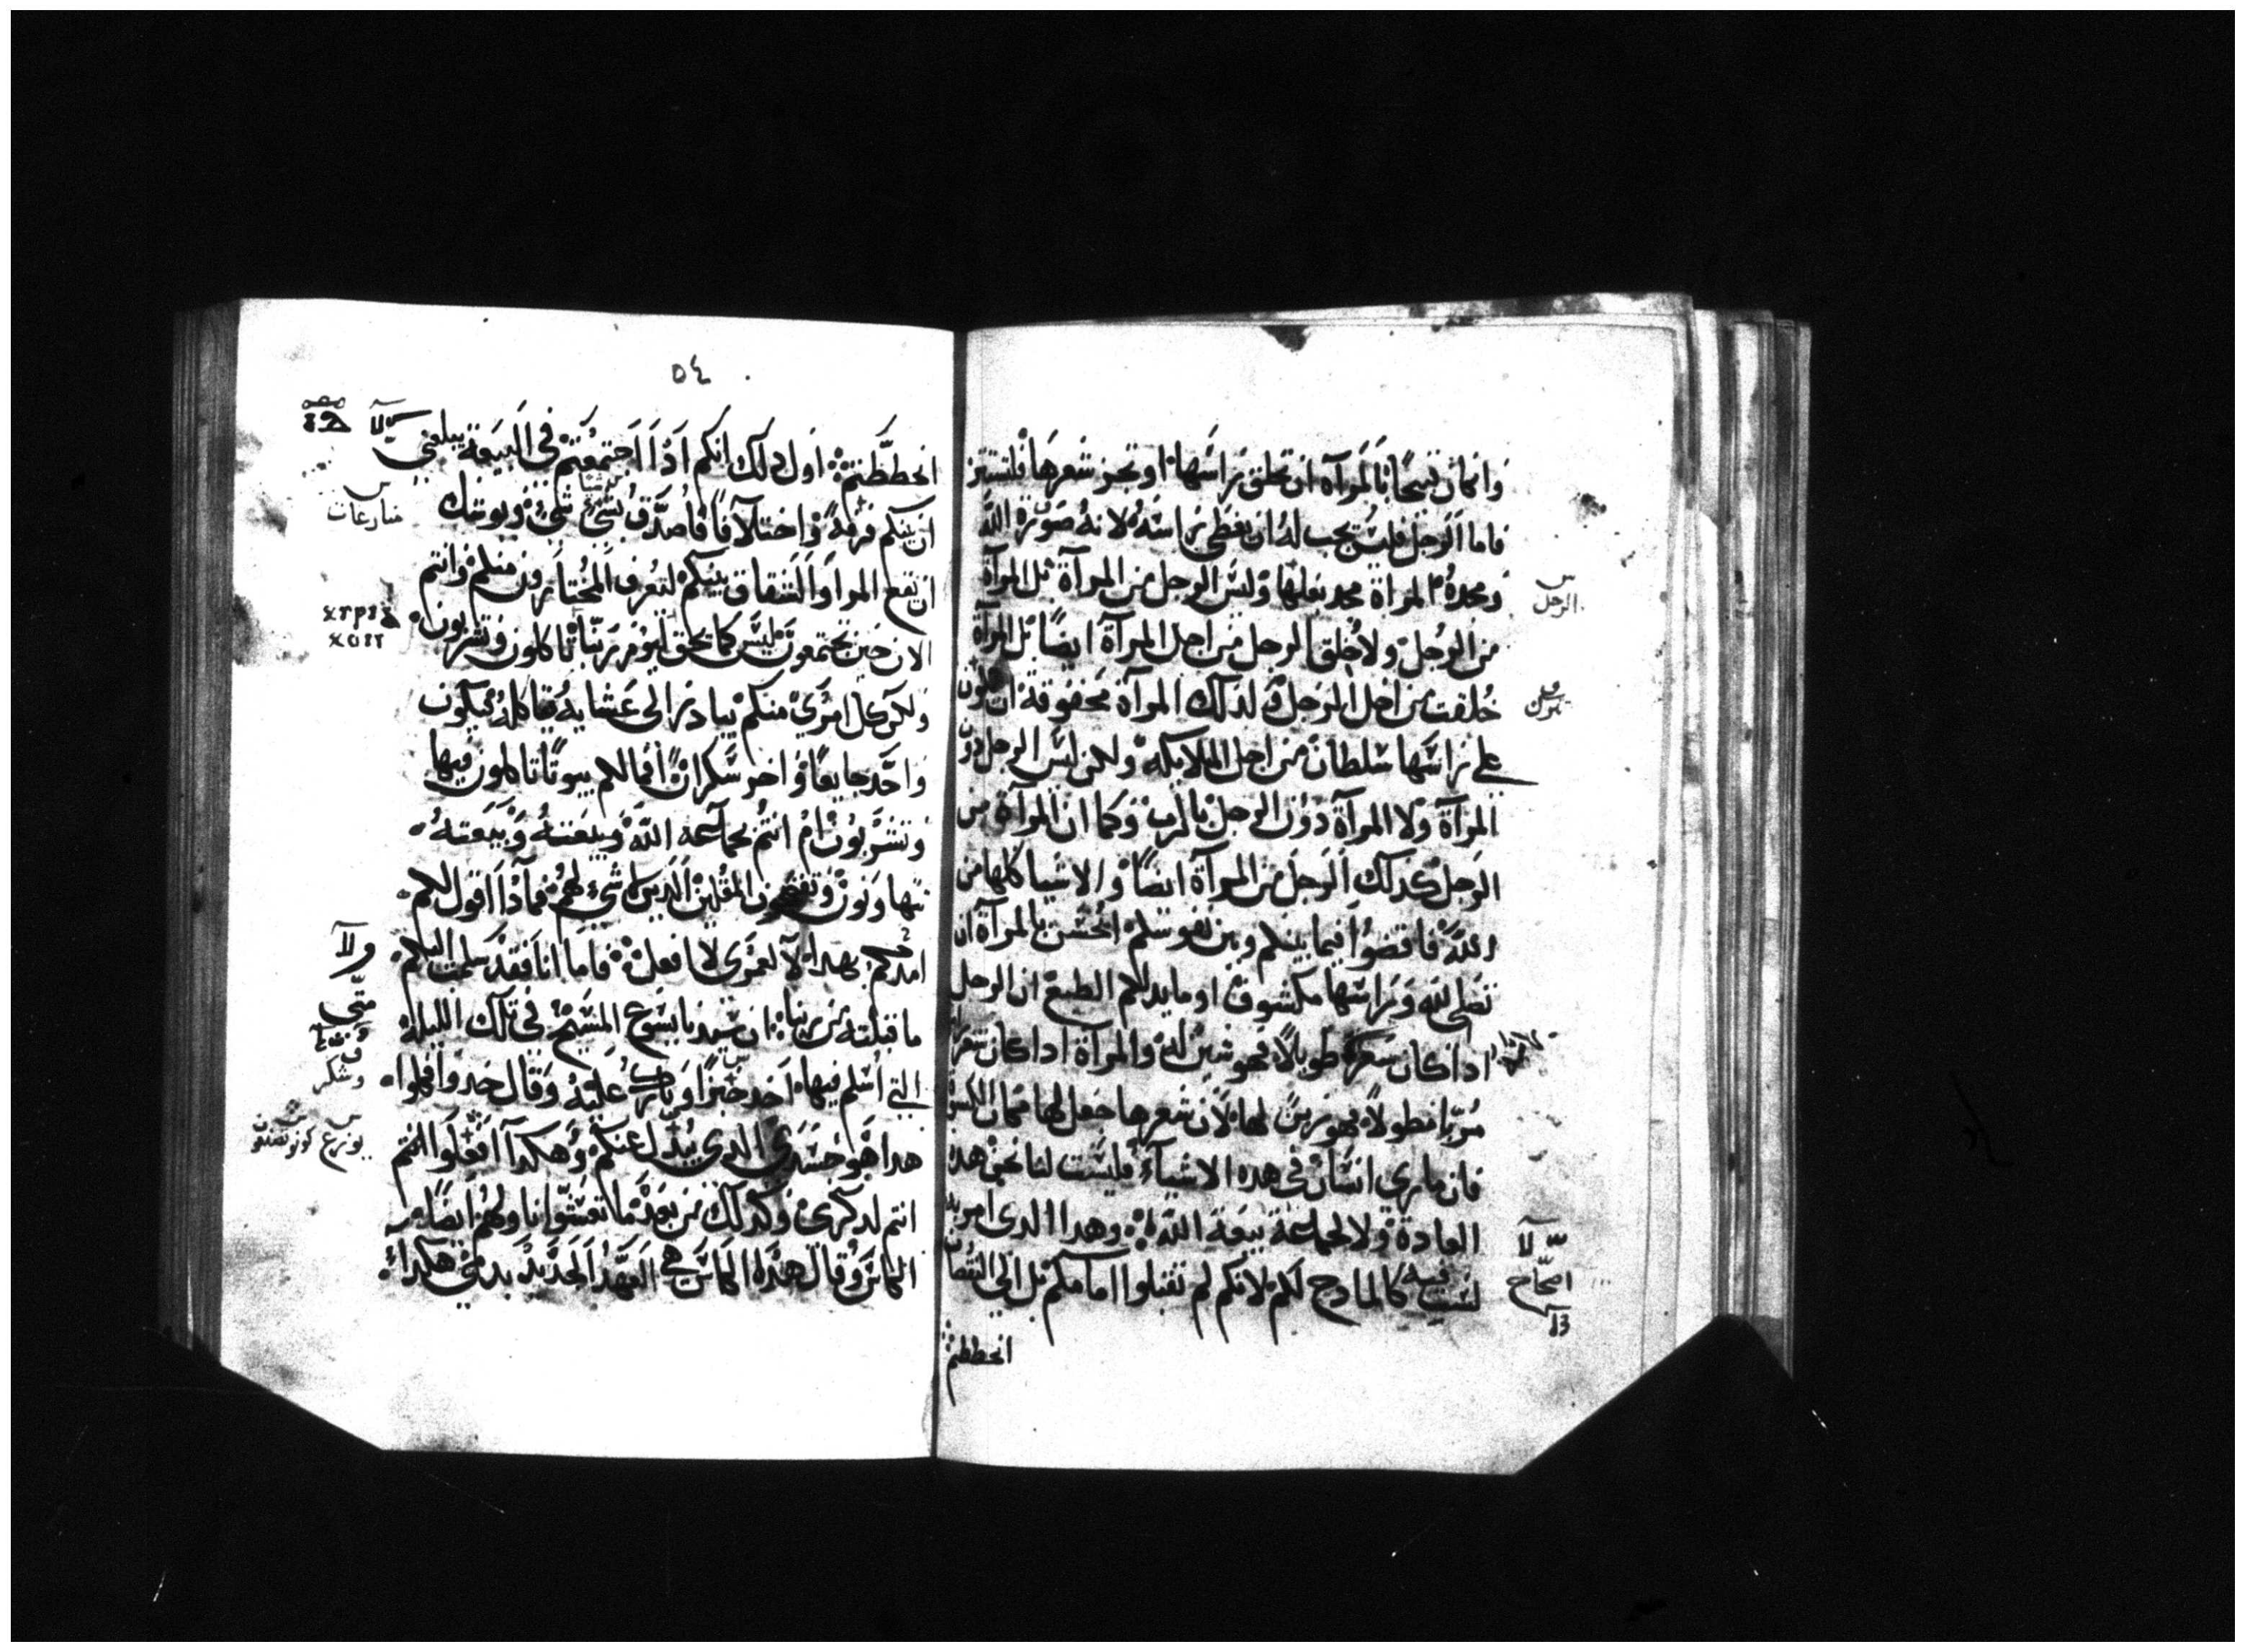 وان كان قبيحًا بالمرآه ان تحلق راسها او تجز شعرها فلتستتر
فاما الرجل فليس يجب له ان يغطي راسه لانه صورة الله
ومجده والمراة مجد بعلها وليس الرجل من المرآة بل المرآة
الرجل
من الرجل ولا خلق الرجل من اجل المرآة ايضًا بل المرآة
خلقت من اجل الرجل ولذلك المرآه محقوقة ان يكون
على راسها سلطان من اجل الملايكه ولكن ليس الرجل دون
المرآة ولا المرآة دون الرجل بالرب وكما ان المرآة من
الرجل كدلك الرجل من المرآة ايضًا والاشيا كلها من
الله فاقضوا فيما بينكم وبين نفوسكم ايحسن بالمرآة ان
تصلي لله وراسها مكشوف او ما يدلكم الطبع ان الرجل
ادا كان شعره طويلا فهو شين له والمرآة ادا كان شعرها
مربا مطولاً فهو زين لها لان شعرها جعل لها مكان الكسوة
فان مارى انسان في هده الاشياء فليست لنا نحن هده
العادة ولا لجماعة بيعة الله وهدا الدى امر به
لست فيه كالمادح لكم لانكم لم تقبلوا امامكم بل الى النقصان
اصحاح
انحططتم
٥٤
انحططتم اول دلك انكم ادا اجتمعتم في البيعة يبلغني
ان بينكم فرقة واختلافا فاصدق بشي شي ويوشك
منازعات
ان يقع المرا والشقاق بينكم ليعرف المختارون منكم وانتم
الان حين تجتمعون ليس كما يحق ليوم ربنا تاكلون وتشربون
ولكن كل امري منكم يبادر الى عشايه فياكله فيكون
واحد جايعًا واخر سكران افما لكم بيوتًا تاكلون فيها
وتشربون ام انتم بجماعة الله وبيعته
تتهاونون وتفضحون المقلين الدين لا شي لهم فمادا اقول لكم
امدحكم بهدا لا لعمري لا افعل فاما انا فقد سلمت اليكم
ولا
ما قبلته من ربنا ان سيدنا يسوع المسيح في تلك الليله
متى
التي اسلم فيها اخد خبزا وبارك عليه وقال خدوا فكلوا
وشكر
هدا هو جسدي الدى يبدل عنكم وهكدا افعلوا انتم
انتم لدكرى وكدلك من بعد ما تعشوا ناولهم ايضا
الكاس وقال هده الكاس هي العهد الجديد بدمي هكدا